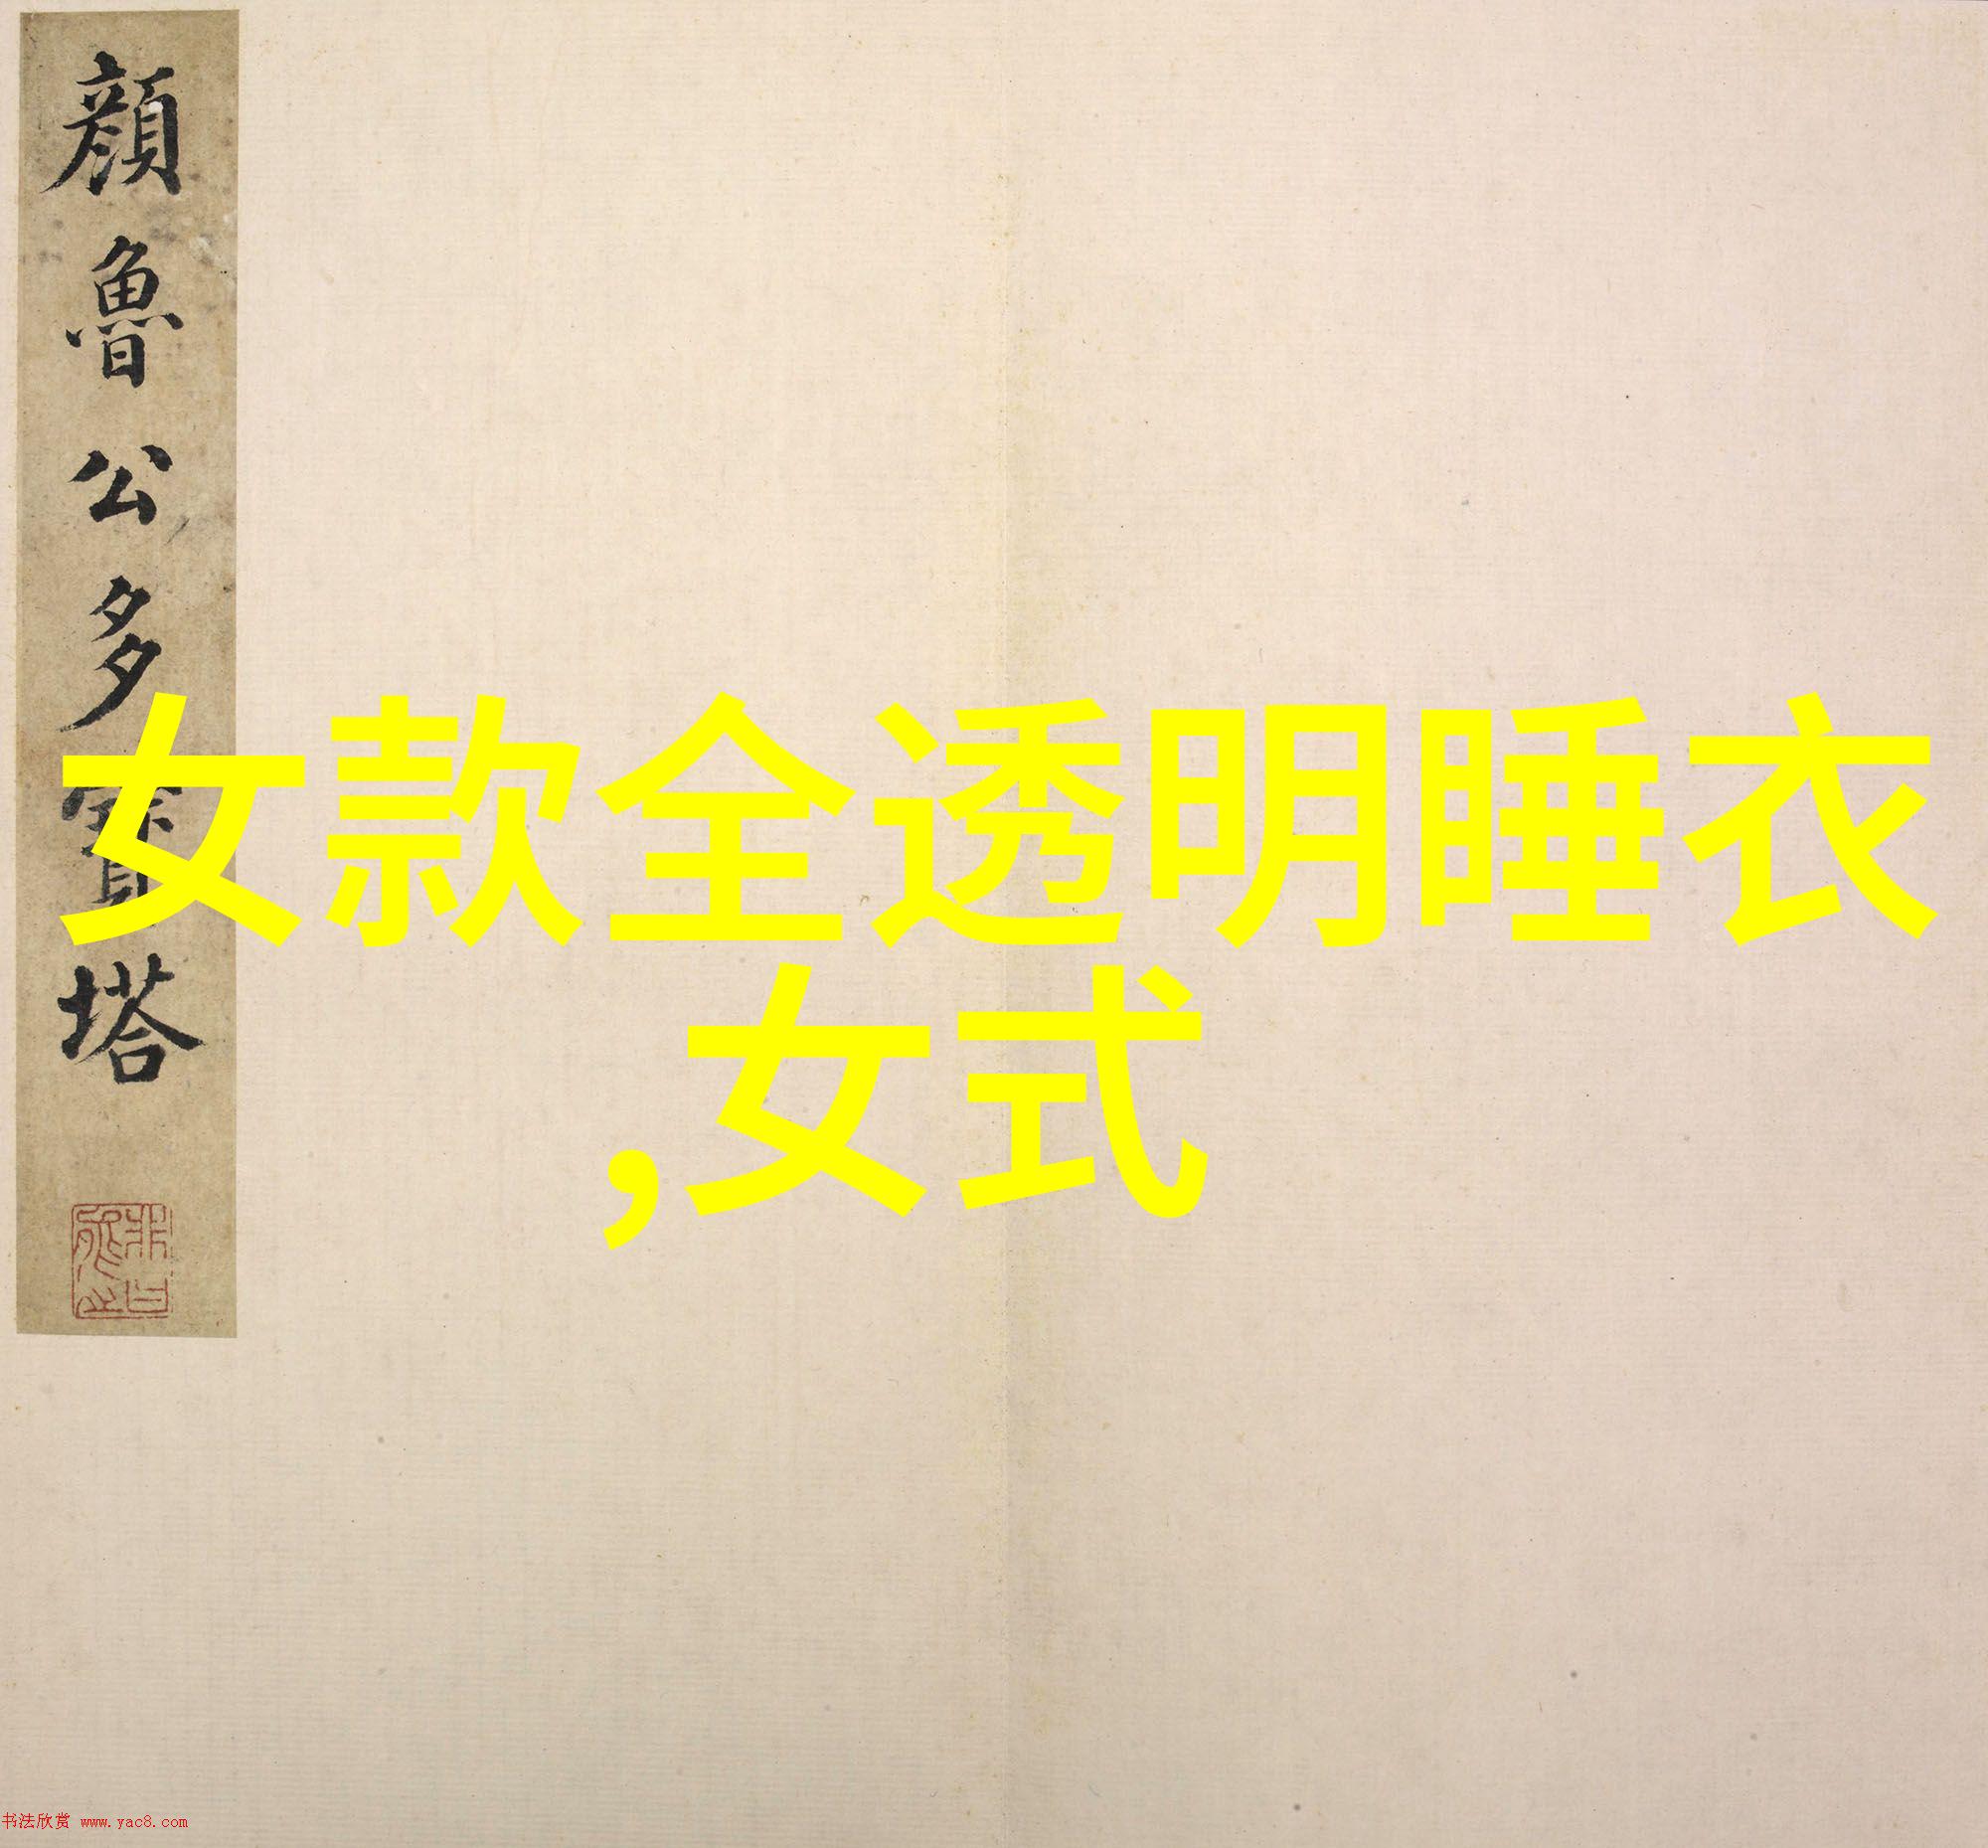 顔魯公多寶塔
女款全透明睡衣
,女式
书法欣赏 www.yac8.com